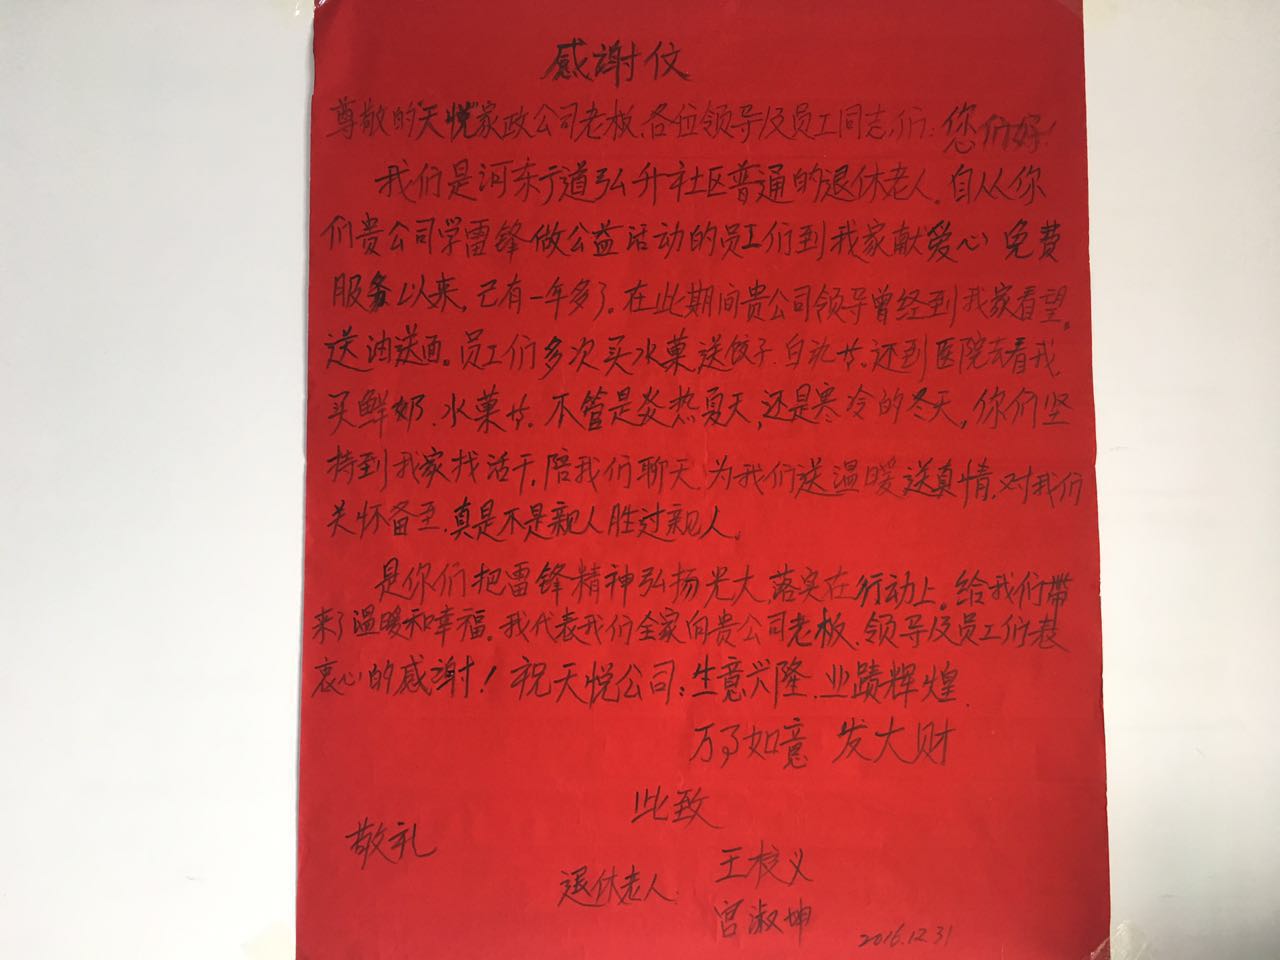 感谢伩
尊敬的"天悦"家政公司老板、各位领导及员工同志们：您们好！
我们是河东亍道弘升社区普通的退休老人。自从你
们贵公司学雷锋做公益活动的员工们到我家献爱心免费
服务以来，已有一年多了。在此期间贵公司领导曾经到我家看望。
送油送面。员工们多次买水菓送饺子、白沇廿。还到医院去看我
买鲜奶、水菓廿。不管是炎热夏天，还是寒冷的冬天，你们坚
持到我家找活干，陪我们聊天，为我们送温暖送真情，对我们
关怀备至，真是不是亲人胜过亲人。
是你们把雷锋精神弘扬光大，落实在行动上。给我们带
来了温暖和幸福。我代表我们全家向贵公司老板、领导及员工们表
衷心的感谢！祝天悦公司：生意兴隆、业蹟辉煌、
万事如意 发大财
此致
敬礼
退休老人： 王校义
宫淑坤
2016.12.31